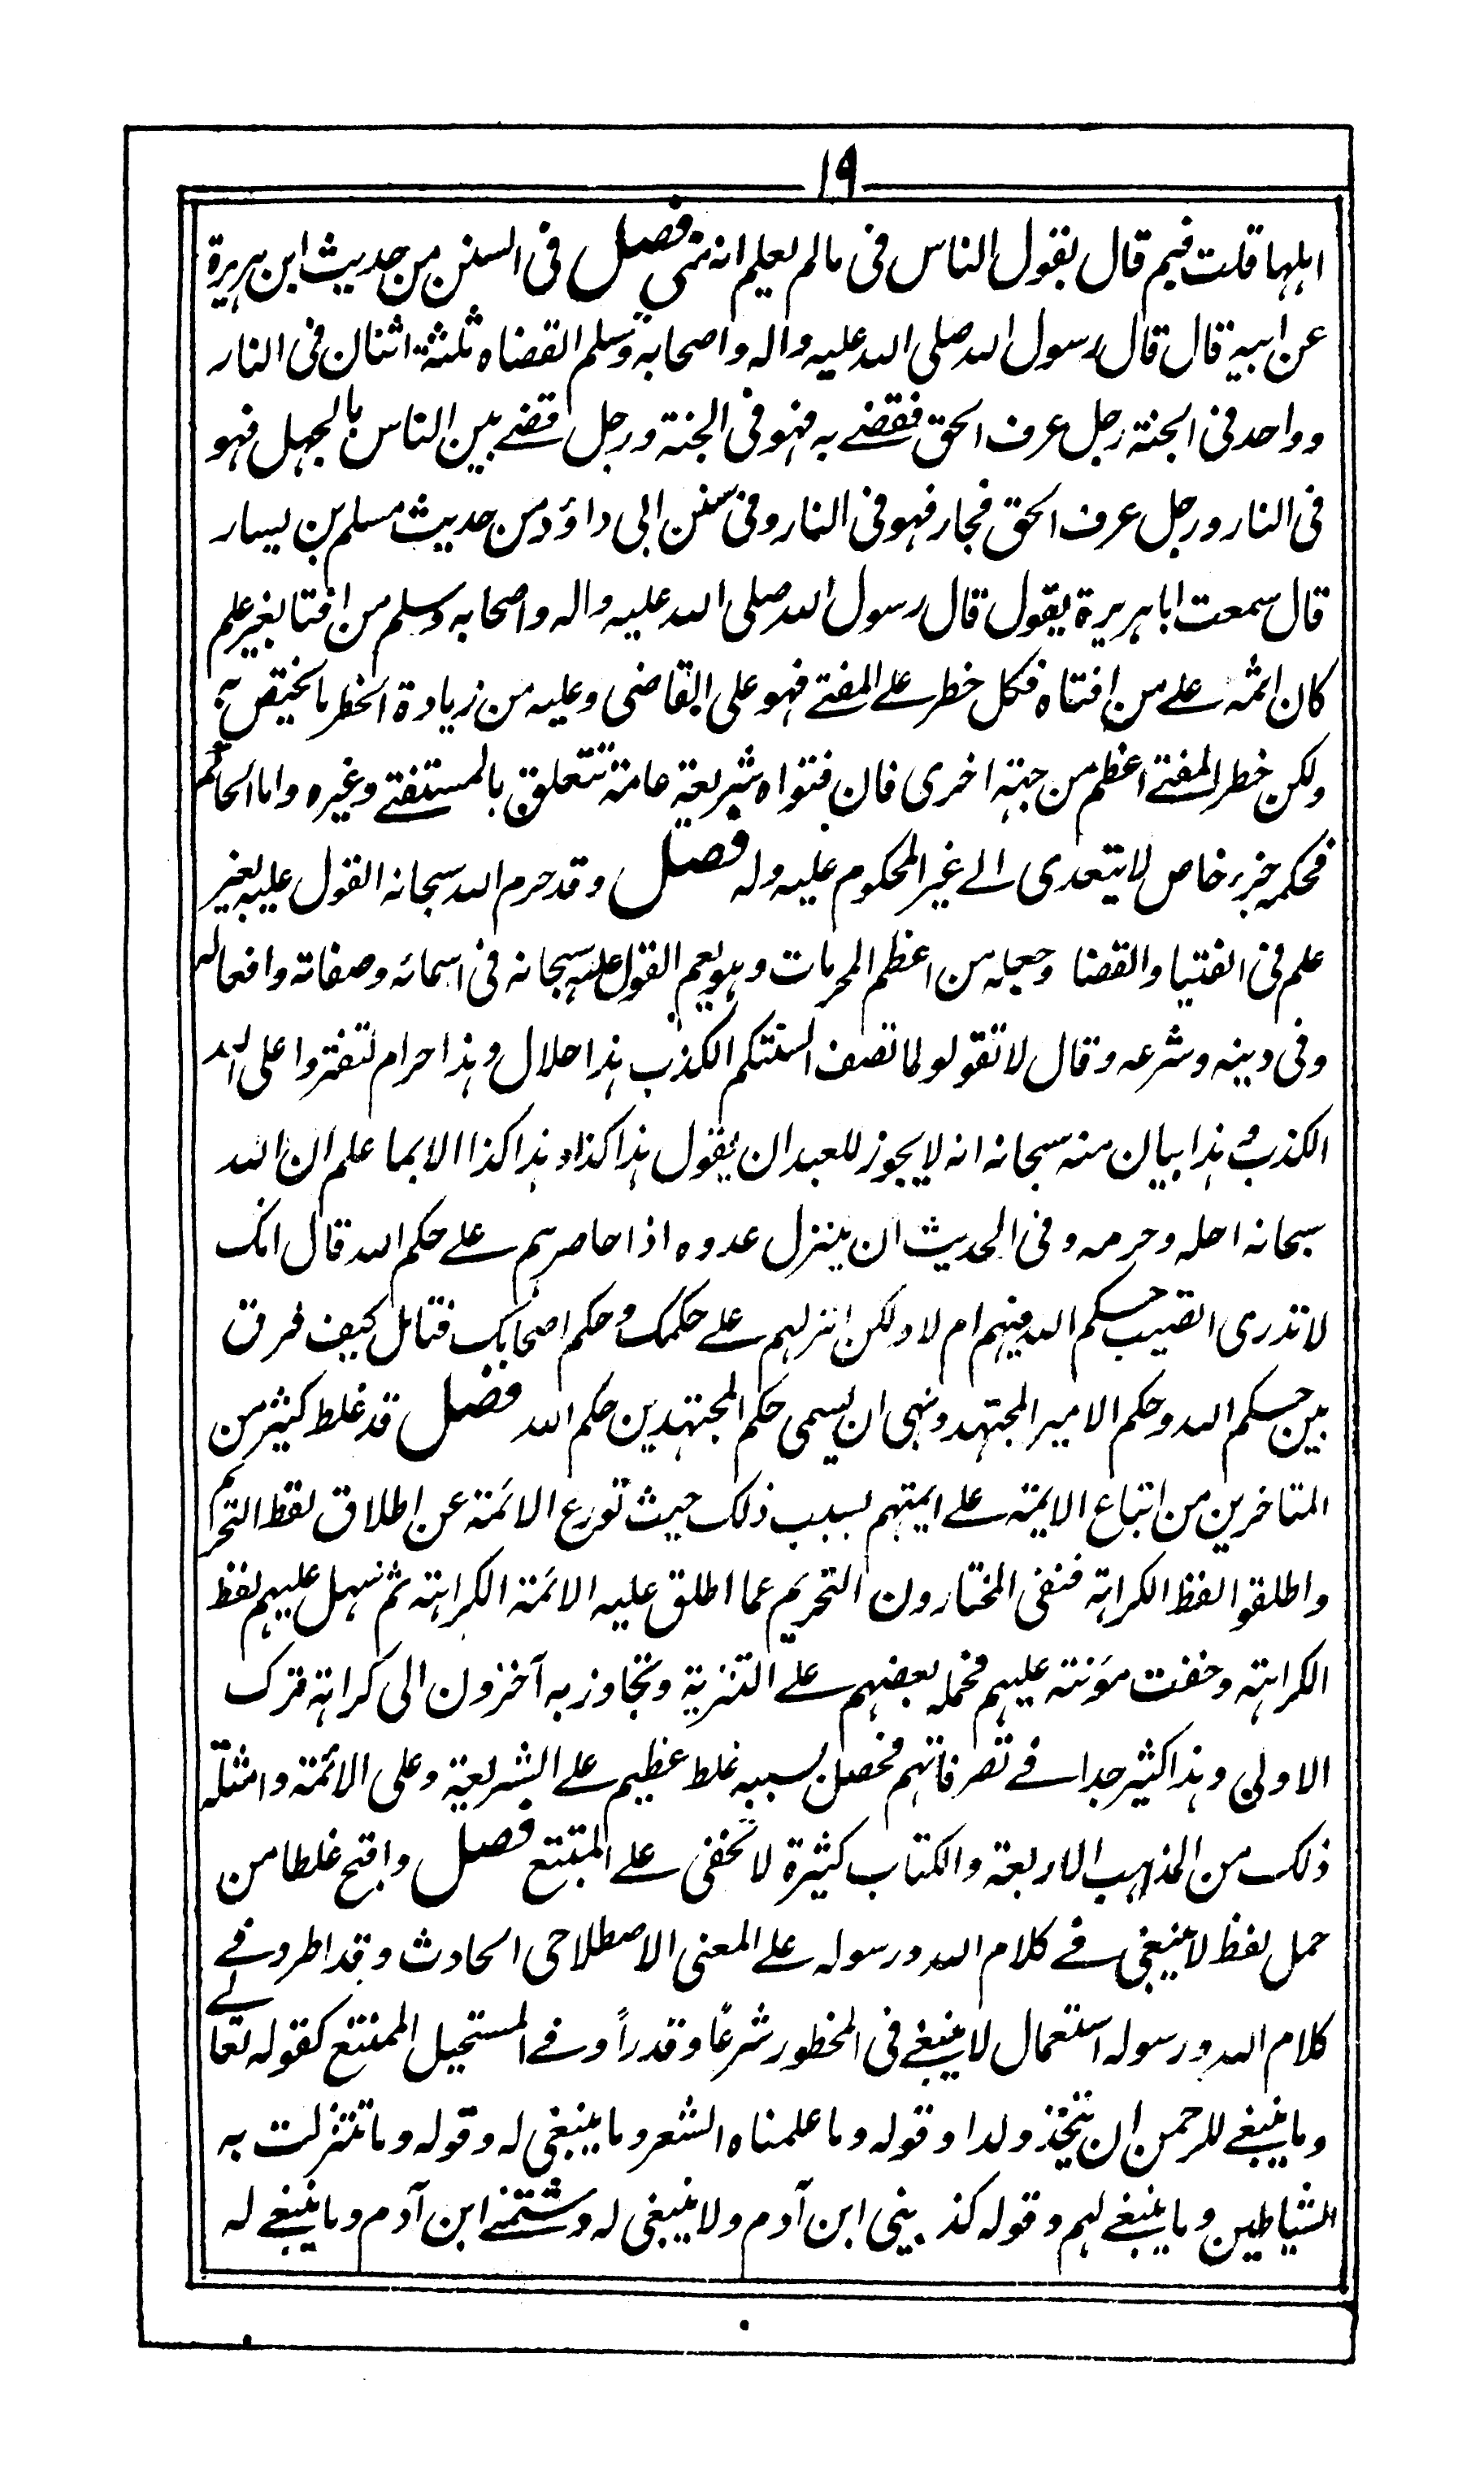 ١٩
اہلہا قلت فیم قال یقول الناس فی مالم یعلم انتہی فصل فی السنن من حدیث ابن ہریرۃ
عن ابیہ قال قال رسول اللہ صلی اللہ علیہ والہ واصحابہ وسلم القضاہ ثلثۃ اثنان فی النار
وواحد فی الجنۃ رجل عرف الحق فقضے بہ فہو فی الجنۃ ورجل قضے بین الناس بالجہل فہو
فی النار ورجل عرف الحق فجار فہو فی النار وفی سنن ابی داؤد من حدیث مسلم بن یسار
قال سمعت ابا ہریرۃ یقول قال رسول اللہ صلی اللہ علیہ والہ واصحابہ وسلم من افتا بغیر علم
کان اثمہ علے من افتاہ فکل خطر علے المفتے فہو علی القاضی وعلیہ من زیادۃ الخطر ما یختص بہ
ولکن خطر المفتے اعظم من جہتہ اخری فان فتواہ شریعۃ عامۃ تتعلق بالمستفتے وغیرہ واما الحاکم
فحکمہ جزء خاص لا یتعدی الے غیر المحکوم علیہ ولہ فصل وقد حرم اللہ سبحانہ القول علیہ بغیر
علم فی الفتیا والقضا وجعلہ من اعظم المحرمات وہو یعم القول علیہ سبحانہ فی اسمائہ وصفاتہ وافعالہ
وفی دینہ وشرعہ وقال لا تقولو لما تصف السنتکم الکذب ہذا حلال وہذا حرام لتفتروا علی اللہ
الکذب وہذا بیان منہ سبحانہ انہ لا یجوز للعبد ان یقول ہذا کذا وہذا کذا الا بما علم ان اللہ
سبحانہ احلہ وحرمہ وفی الحدیث ان ینزل عدوہ اذا حاصرہم علے حکم اللہ قال انک
لا تدری اتصیب حکم اللہ فیہم ام لا ولکن انزلہم علے حکمک وحکم اصحابک فتامل کیف فرق
بین حکم اللہ وحکم الامیر المجتہد ونہی ان یسمی حکم المجتہدین حکم اللہ فصل قد غلط کثیر من
المتاخرین من اتباع الایمۃ علے ایمتہم بسبب ذلک حیث تورع الائمۃ عن اطلاق لفظ التحریم
واطلقوا لفظ الکراہۃ فنفی المختارون التحریم عما اطلق علیہ الائمۃ الکراہتہ ثم سہل علیہم لفظ
الکراہتہ وخفت مؤنتہ علیہم فحملہ بعضہم علے التنزیۃ وتجاوز بہ آخرون الی کراہۃ ترک
الاولی وہذا کثیر جدا فے تصرفاتہم فحصل بسببہ غلط عظیم علے الشریعۃ وعلی الائمۃ وامثلۃ
ذلک من المذہب الاربعۃ والکتاب کثیرۃ لا تخفی علے المتتبع فصل واقبح غلطا من
حمل لفظ لا ینبغی فے کلام اللہ ورسولہ علے المعنی الاصطلاحی الحادث وقد اطرد فے
کلام اللہ ورسولہ استعمال لا ینبغے فی المحظور شرعاً وقدراً وفے المستحیل الممتنع کقولہ تعالے
وما ینبغے للرحمن ان یتخذ ولدا وقولہ وما علمناہ الشعر وما ینبغی لہ وقولہ وما تنزلت بہ
الشیاطین وما ینبغے لہم وقولہ کذبنی ابن آدم ولا ینبغی لہ وشتمنے ابن آدم وما ینبغے لہ